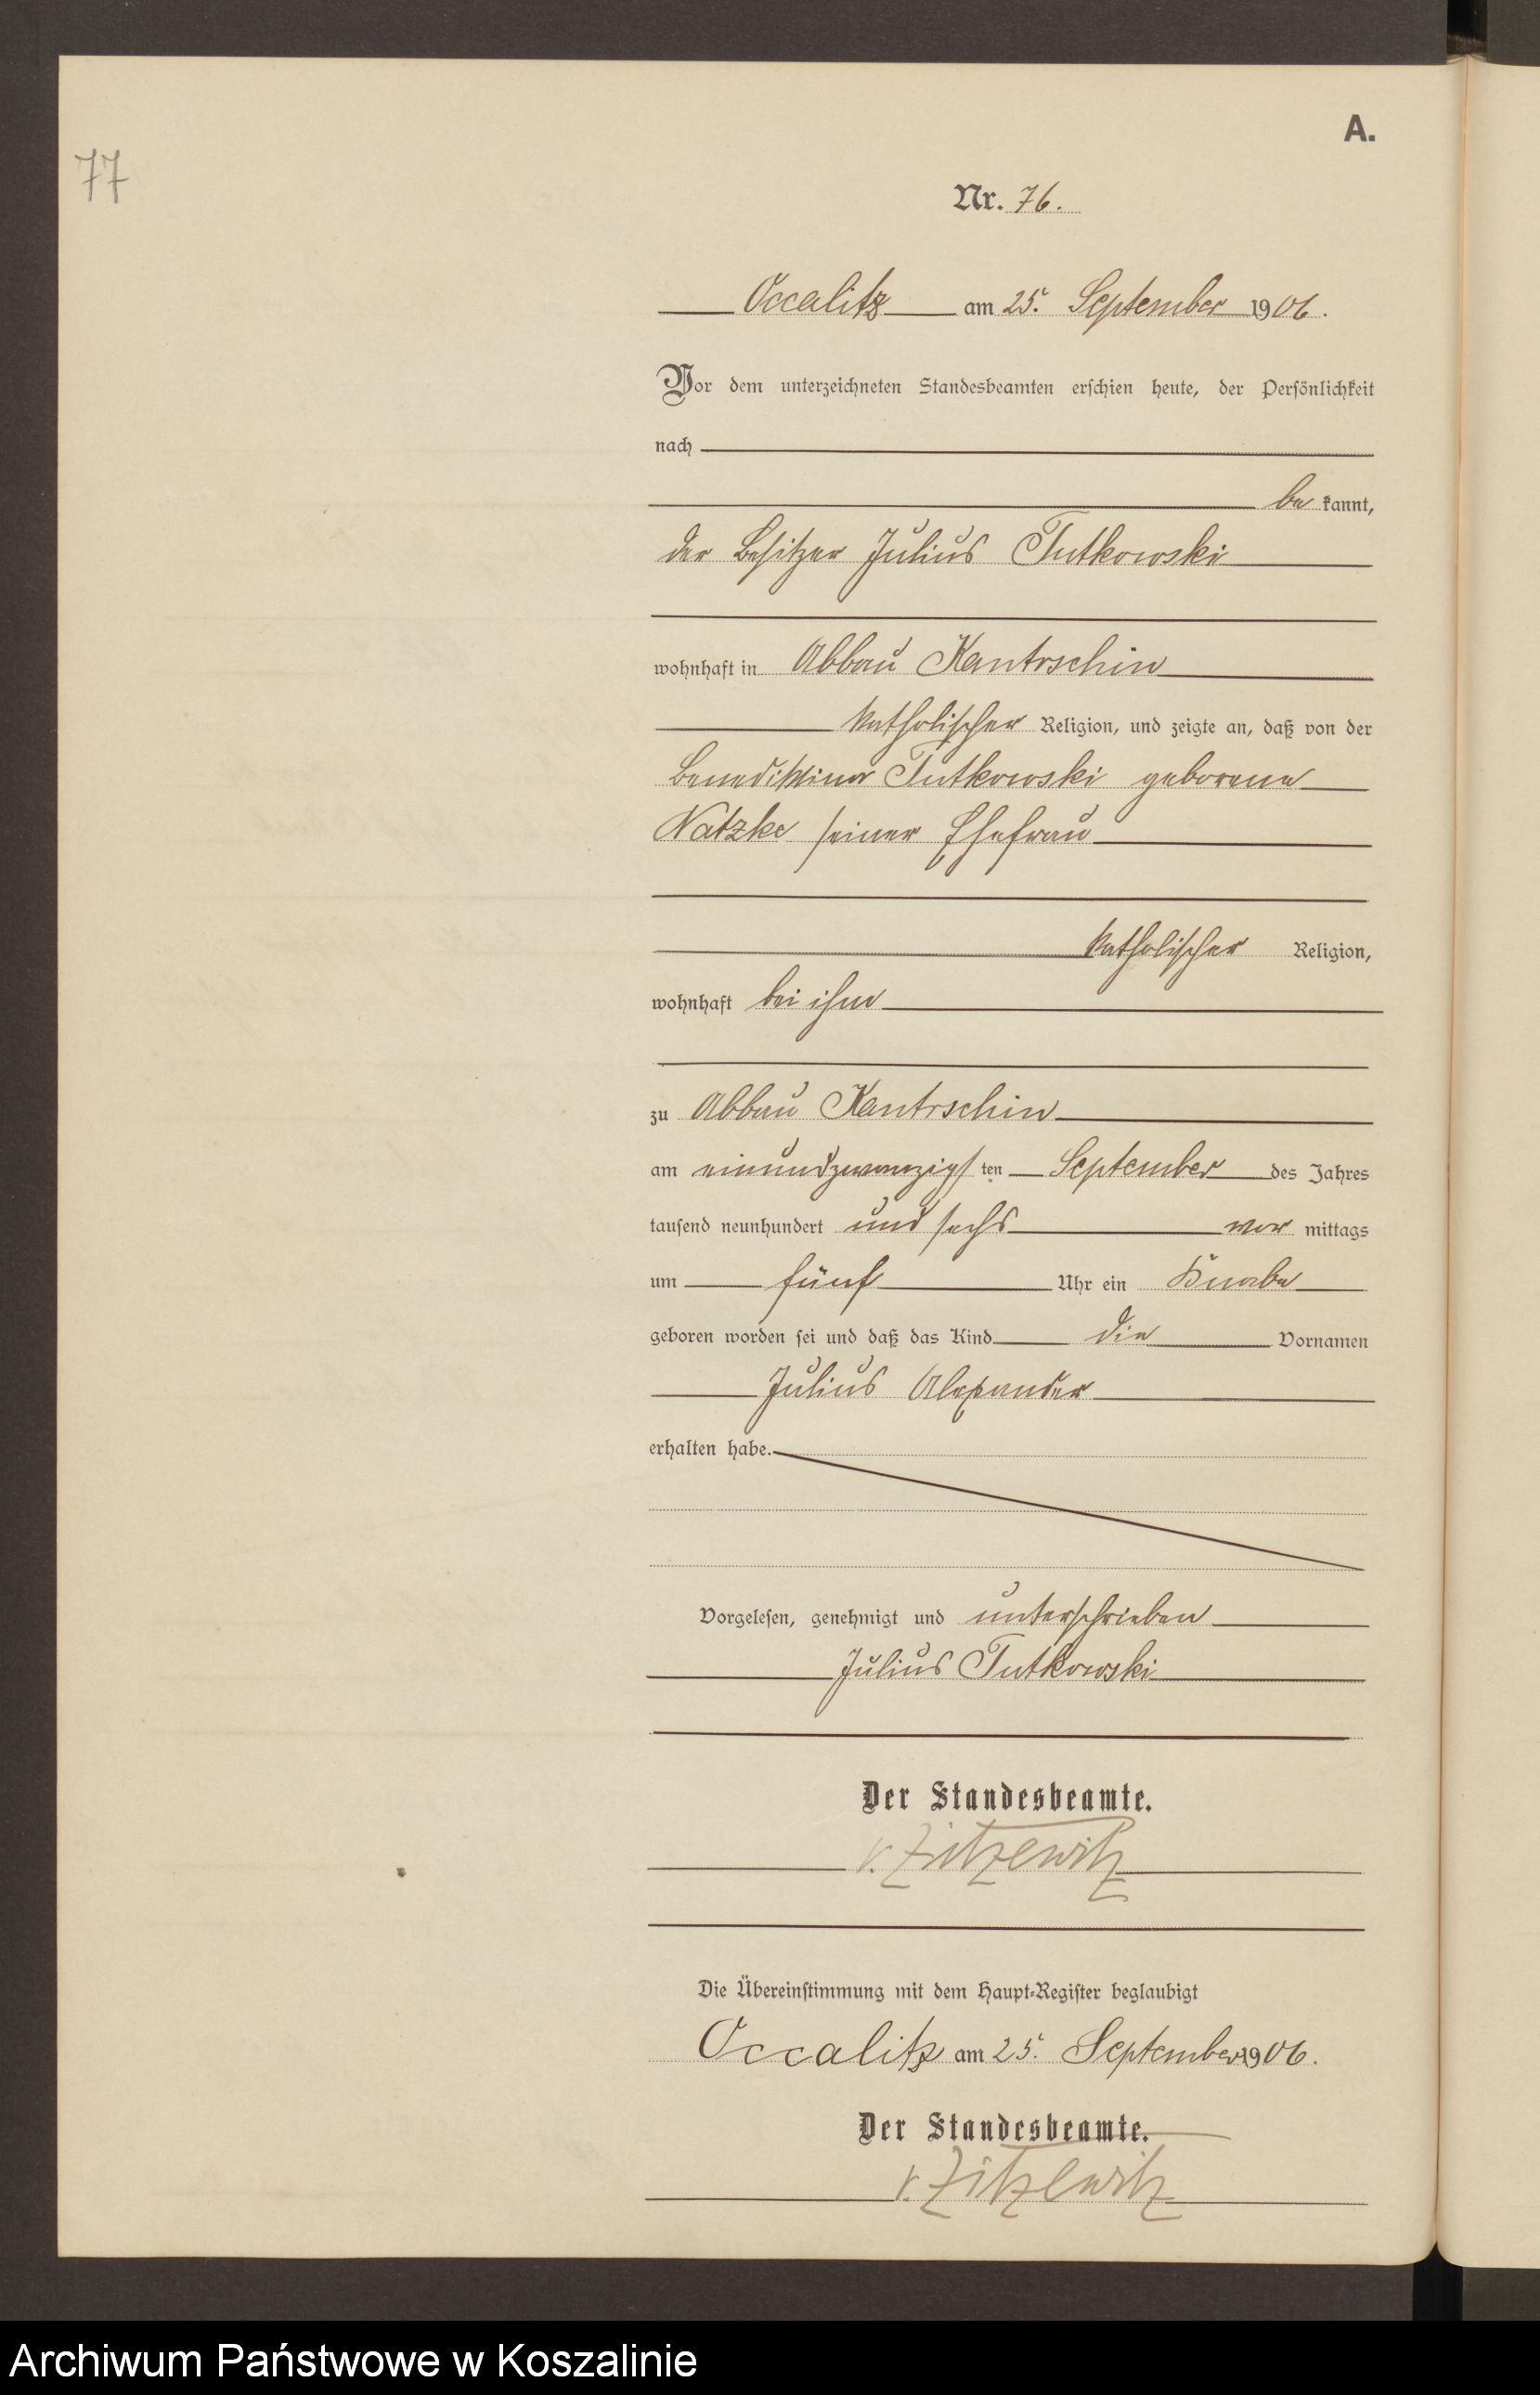 A.
77
Nr. 76.
Occalitz am 25. September 1906.
Vor dem unterzeichneten Standesbeamten erschien heute, der Persönlichkeit
nach
be kannt,
der Besitzer Julius Tutkowski
wohnhaft in Abbau Kantrschin
katholischer Religion, und zeigte an, daß von der
Benediktina Tutkowski geborene
Natzke seiner Ehefrau
katholischer Religion,
wohnhaft bei ihm
zu Abbau Kantrschin
am einundzwanzigs ten September des Jahres
tausend neunhundert und sechs vor mittags
um fünf Uhr ein Knabe
geboren worden sei und daß das Kind die Vornamen
Julius Alexander
erhalten habe.
Vorgelesen, genehmigt und unterschrieben
Julius Tutkowski
Der Standesbeamte.
v. Zitzewitz
Die Übereinstimmung mit dem Haupt-Register beglaubigt
Occalitz am 25. September 1906.
Der Standesbeamte.
v. Zitzewitz
Archiwum Państwowe w Koszalinie